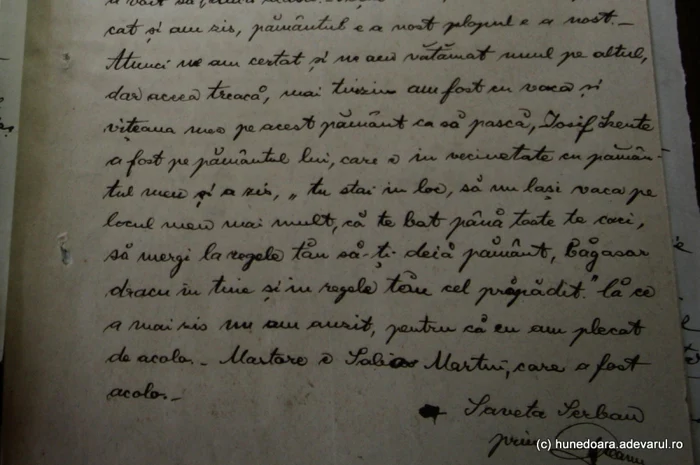 cat și am zis, pământul e a nost plopul e a nost. –
Atunci ne am certat și ne am vătămat unul pe altul,
dar aceea treacă, mai târziu am fost cu vaca și
vițeaua mea pe acest pământ ca să pască, Iosif Szente
a fost pe pământul lui, care e in vecinetate cu pămân-
tul meu și a zis, „tu stai in loc, să nu lași vaca pe
locul meu mai mult, că te bat până toate te caci,
să mergi la regele tău să-ți deiă pământ, băgasar
dracu in tine și in regele tău cel prăpădit." că ce
a mai zis nu am auzit, pentru că eu am plecat
de acolo. – Martore e Martin, care a fost
acolo. –
Saveta Serban
prin
(c) hunedoara.adevarul.ro